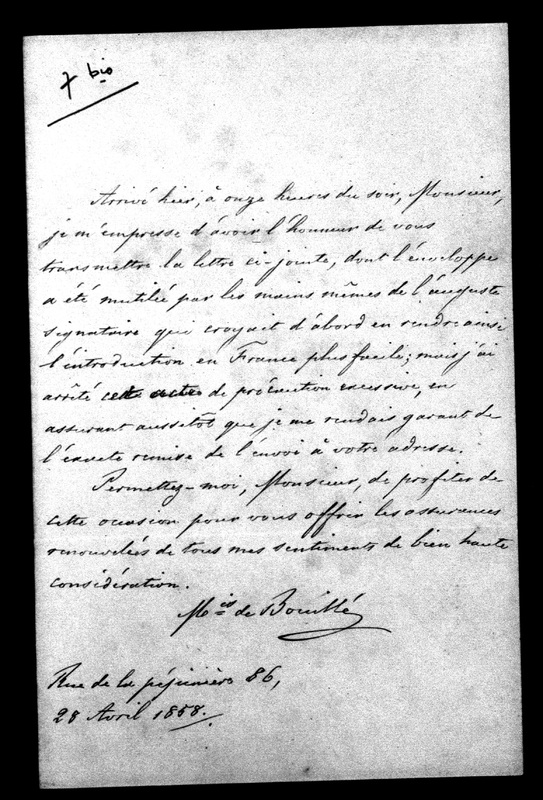 7 bis
Arrivé hier, à onze heures du soir, Monsieur,
je m'empresse d'avoir l'honneur de vous
transmettre la lettre ci-jointe, dont l'enveloppe
a été mutilée par les mains mêmes de l'auguste
signataire qui croyait d'abord en rendre ainsi
l'introduction en France plus facile; mais j'ai
arrêté cette de précaution excessive, en
assurant aussitôt que je me rendais garant de
l'exacte remise de l'envoi à votre adresse.
Permettez-moi, Monsieur, de profiter de
cette occasion pour vous offrir les assurances
renouvelées de tous mes sentiments de bien haute
considération.
Mis de Bouillé
Rue de la pépinière 86,
28 Avril 1858.